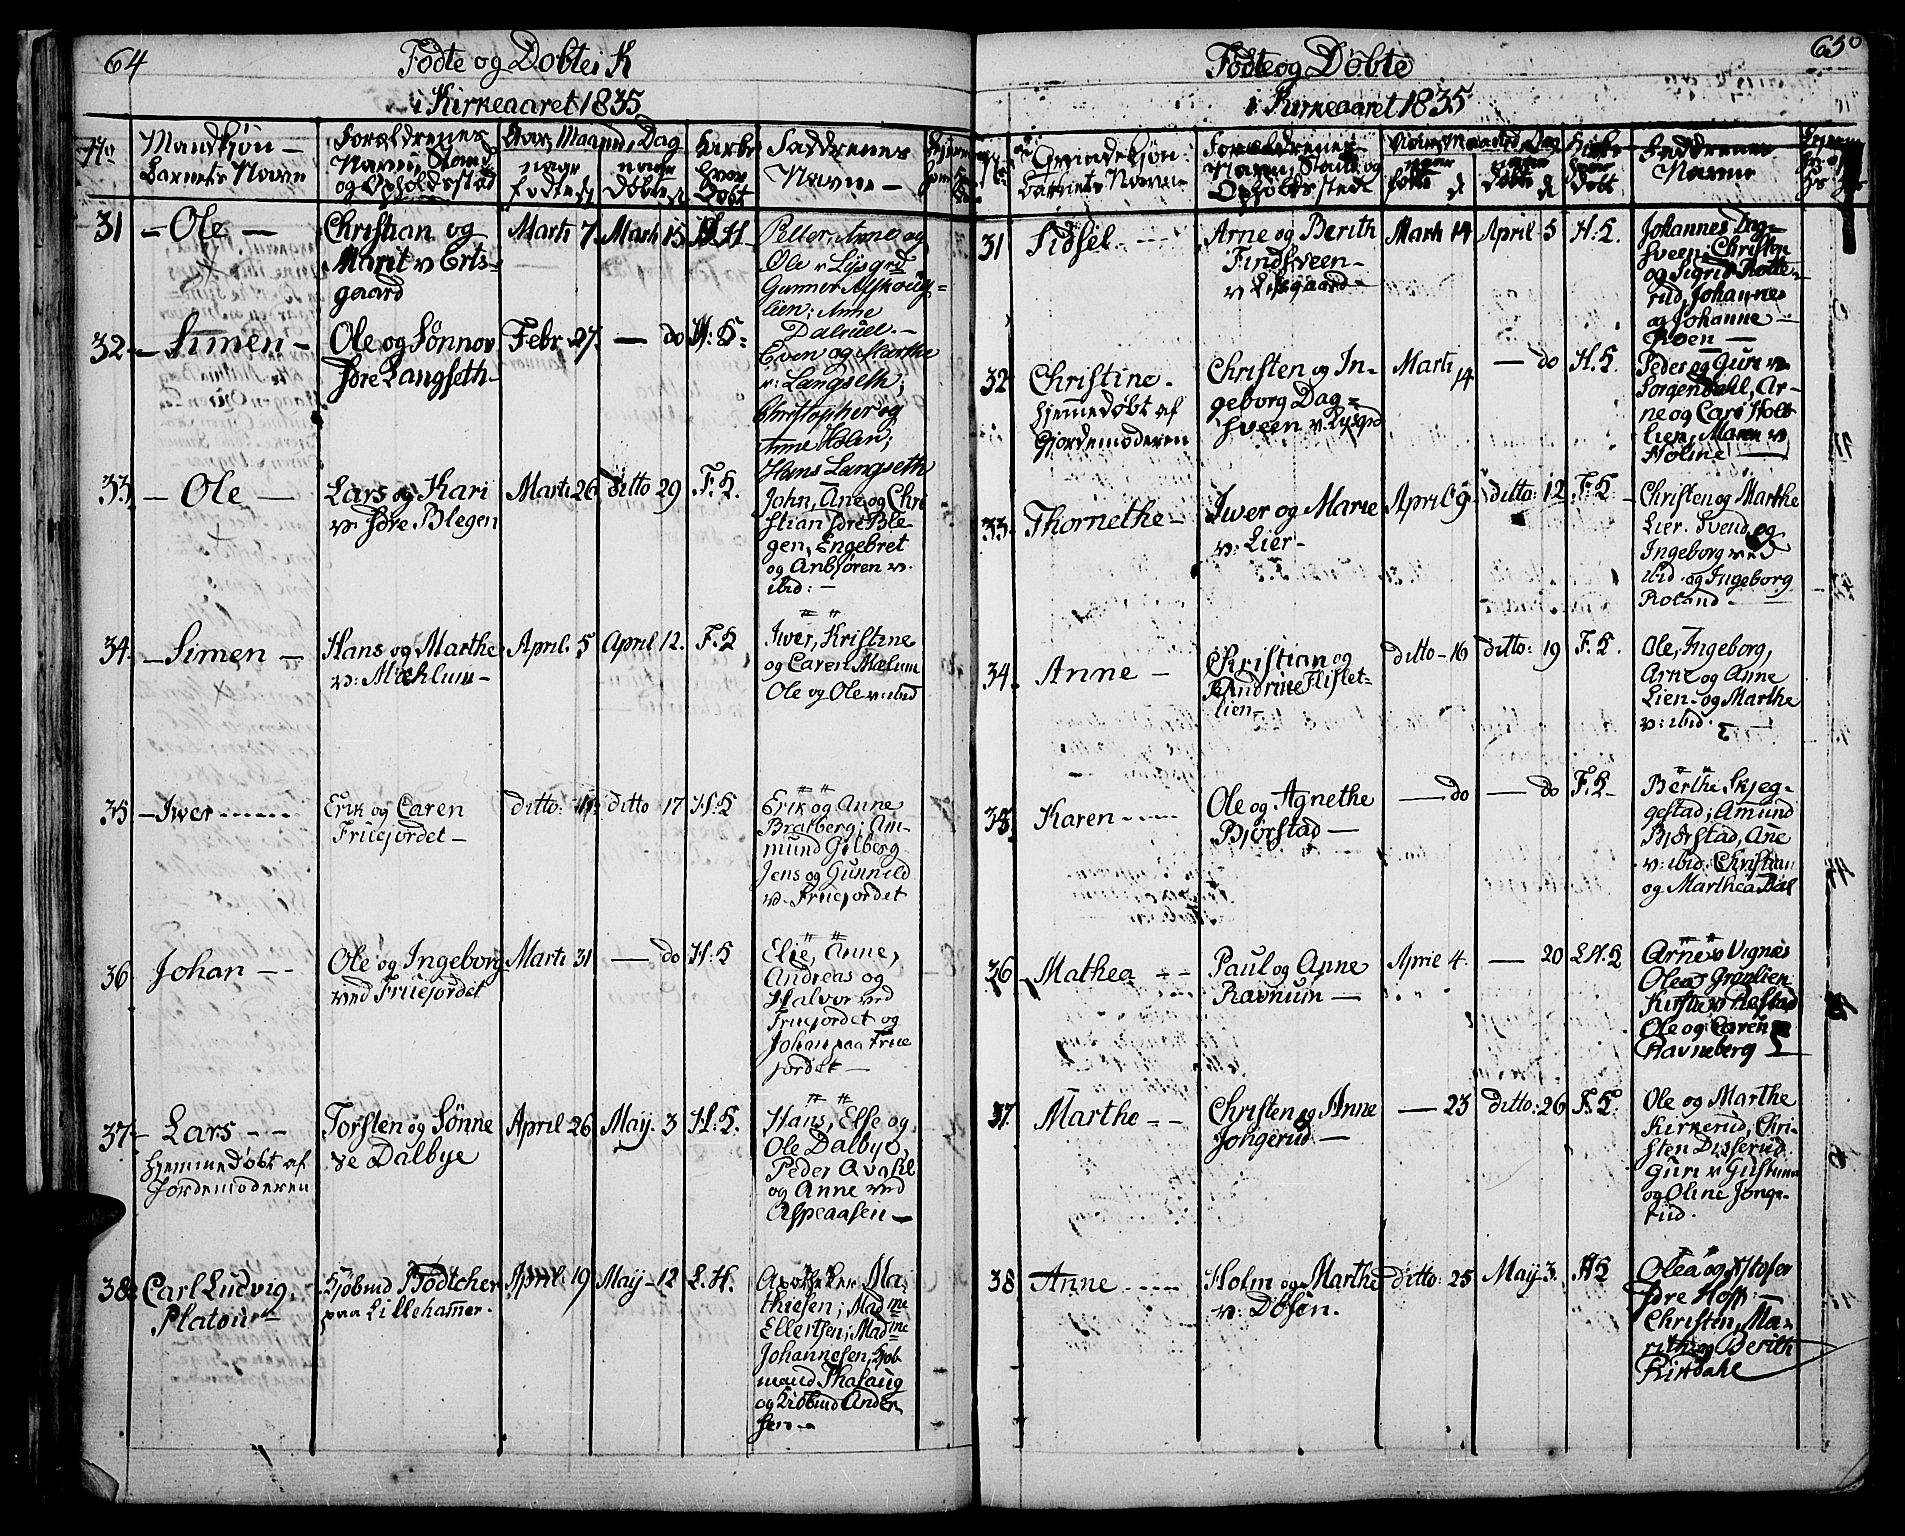 64
Fødte og Døbte i K
i Kirkeaaret 1835
No
Mandkjøn —
Barnets Navn
Forældrenes
Navn, Stand
og Opholdssted
Aar, Maaned, Dag
naar
født
naar
Døbt
Kirke
hvor
Døbt
Faddernes
Navne —
31
— Ole —
Christian og
Marit v Erts-
gaard
Marti 7
Marti 15
Petter, Anne og
Ole v. Lysgrd
Gunner Asfloug-
lien; Anne
Dalsuel. —
32
— Simen —
Ole og Sønnov
Jdre Langseth-
Febr. 27.
— do
H: K:
Even og Marthe
v: Langseth;
Christopher og
Anne Holen;
Hans Langseth
33
— Ole —
Lars og Kari
v: Jdre Blegen
Marti 26
ditto 29
F. K.
John, Ane og Chri
stian Jdre Ble-
gen, Engebret
og Anbjøren v.
ibid: —
34.
— Simen —
Hans og Marthe
v: Mæhlum —
April. 5
April 12.
F. K
Iwer, Kristine
og Caren Mælum
Ole og Ole v: ibid
35
— Iwer ------
Erik og Caren
Fruejordet —
ditto:
ditto 17
H: K
Erik og Anne
Bratberg; Am-
mund Gilberg
Jens og Gunnild
v. Fruejordet
36
Johan --
Ole og Ingeborg
ved Fruejordet
Marti 31
— do
H: K
Elie, Anne,
Andreas og
Halvor ved
Fruejordet og
Johan paa Frue
jordet —
37-
Lars --
hjemmedøbt af
Jordemoderen
Torsten og Sønne
ve Dalbye
April 26
May. 3
H: K.
Hans, Else og
Ole Dalbye,
Peder
og Anne ved
Aspeaasen —
38:
Carl Ludvig
Platou
Kjøbmd Bødtcher
paa Lillehamer.
April. 19
May - 12
L. H.
Apotheker Ma-
thiesen; Madme
Ellertsen; Madme
Johannesen, Kjøb
mand Thalaug
og Kiøbmd Ander
sen —
65
Fødte og Døbte
i Kirkeaaret 1835
Qvindekjøn:
Barnets Navn
Forældrenes
Navn, Stand og
Opholdssted
naar
født
naar
Døbt
Kirke
hvor
Døbt
Faddernes
Navne
31
Sidsel. ---
Arne og Berith
Findsveen —
v Lisgaard —
Marti 14
April 5
H: K.
Johannes Dag-
sveen, Christen
og Sigrid Rotte-
rud, Johannes
og Johanne —
Roen —
32
Christine.
hjemmedøbt af
Gjordemoderen
Christen og In-
geborg Dag-
sveen v. Lysgrd
Marti 14
— do
H. K.
Peder og Guri v
Sorgendahl, Ar-
ne og Cari Holt
lien, Maren v
Holme —
33
Thornethe —
Iwer og Marie
v: Lier —
April 9
ditto: 12
F: K
Christen og Marthe
Lier. Svend og
Ingeborg ved
ibid. og Ingeborg
Roland. —
34.
Anne —
Christian og
Andrine Flislet-
lien —
ditto - 16
ditto: 19
F. K.
Ole, Ingeborg,
Arne og Anne
Lien — og Marthe
v: ibid.
35
Karen -----
Ole og Agnethe
Bjørstad —
— do
— do
F. K —
Berthe Skjeg-
gestad; Amund
Bjørstad, Ane
v: ibid; Christian
og Marthea Dal
36
Mathea --
Paul og Anne
Ravnum —
April 4.
— 20
L H. K
Arne v Vignæs
Olea Grønlien
Ole og Caren
Ravneberg
37
Marthe --
Christen og Anne
Jongerud —
— 23
ditto: 26
F. K.
Ole og Marthe
Kirkerud, Chri-
sten Disserud
Guri v
og Oline Jonge-
rud.
38
Anne -----
Holm og Marthe
v: Døsen.
ditto: 25
May. 3.
H K
Olea og Kristofer
Jdre Hoff; —
Christen, Ma-
rith og Berith